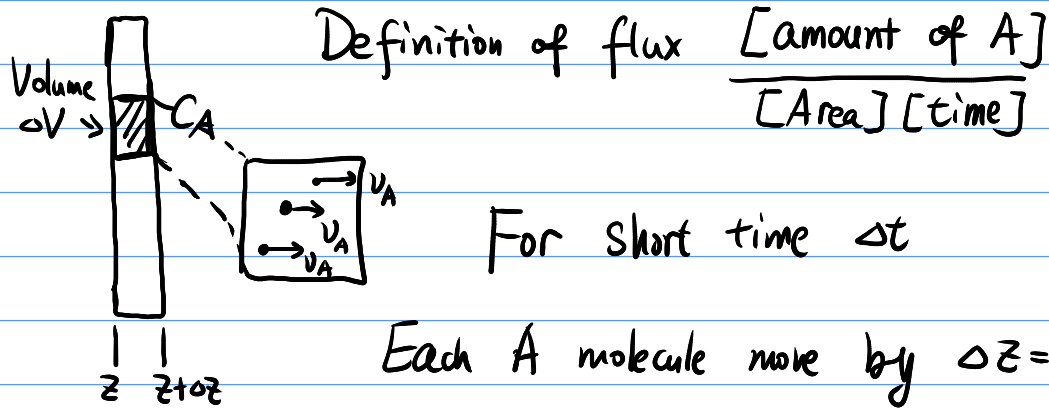 Definition of flux [amount of A]
[Area] [time]
Volume
ΔV
CA
υA
υA
υA
For short time Δt
Each A molecule move by Δz =
z z+Δz